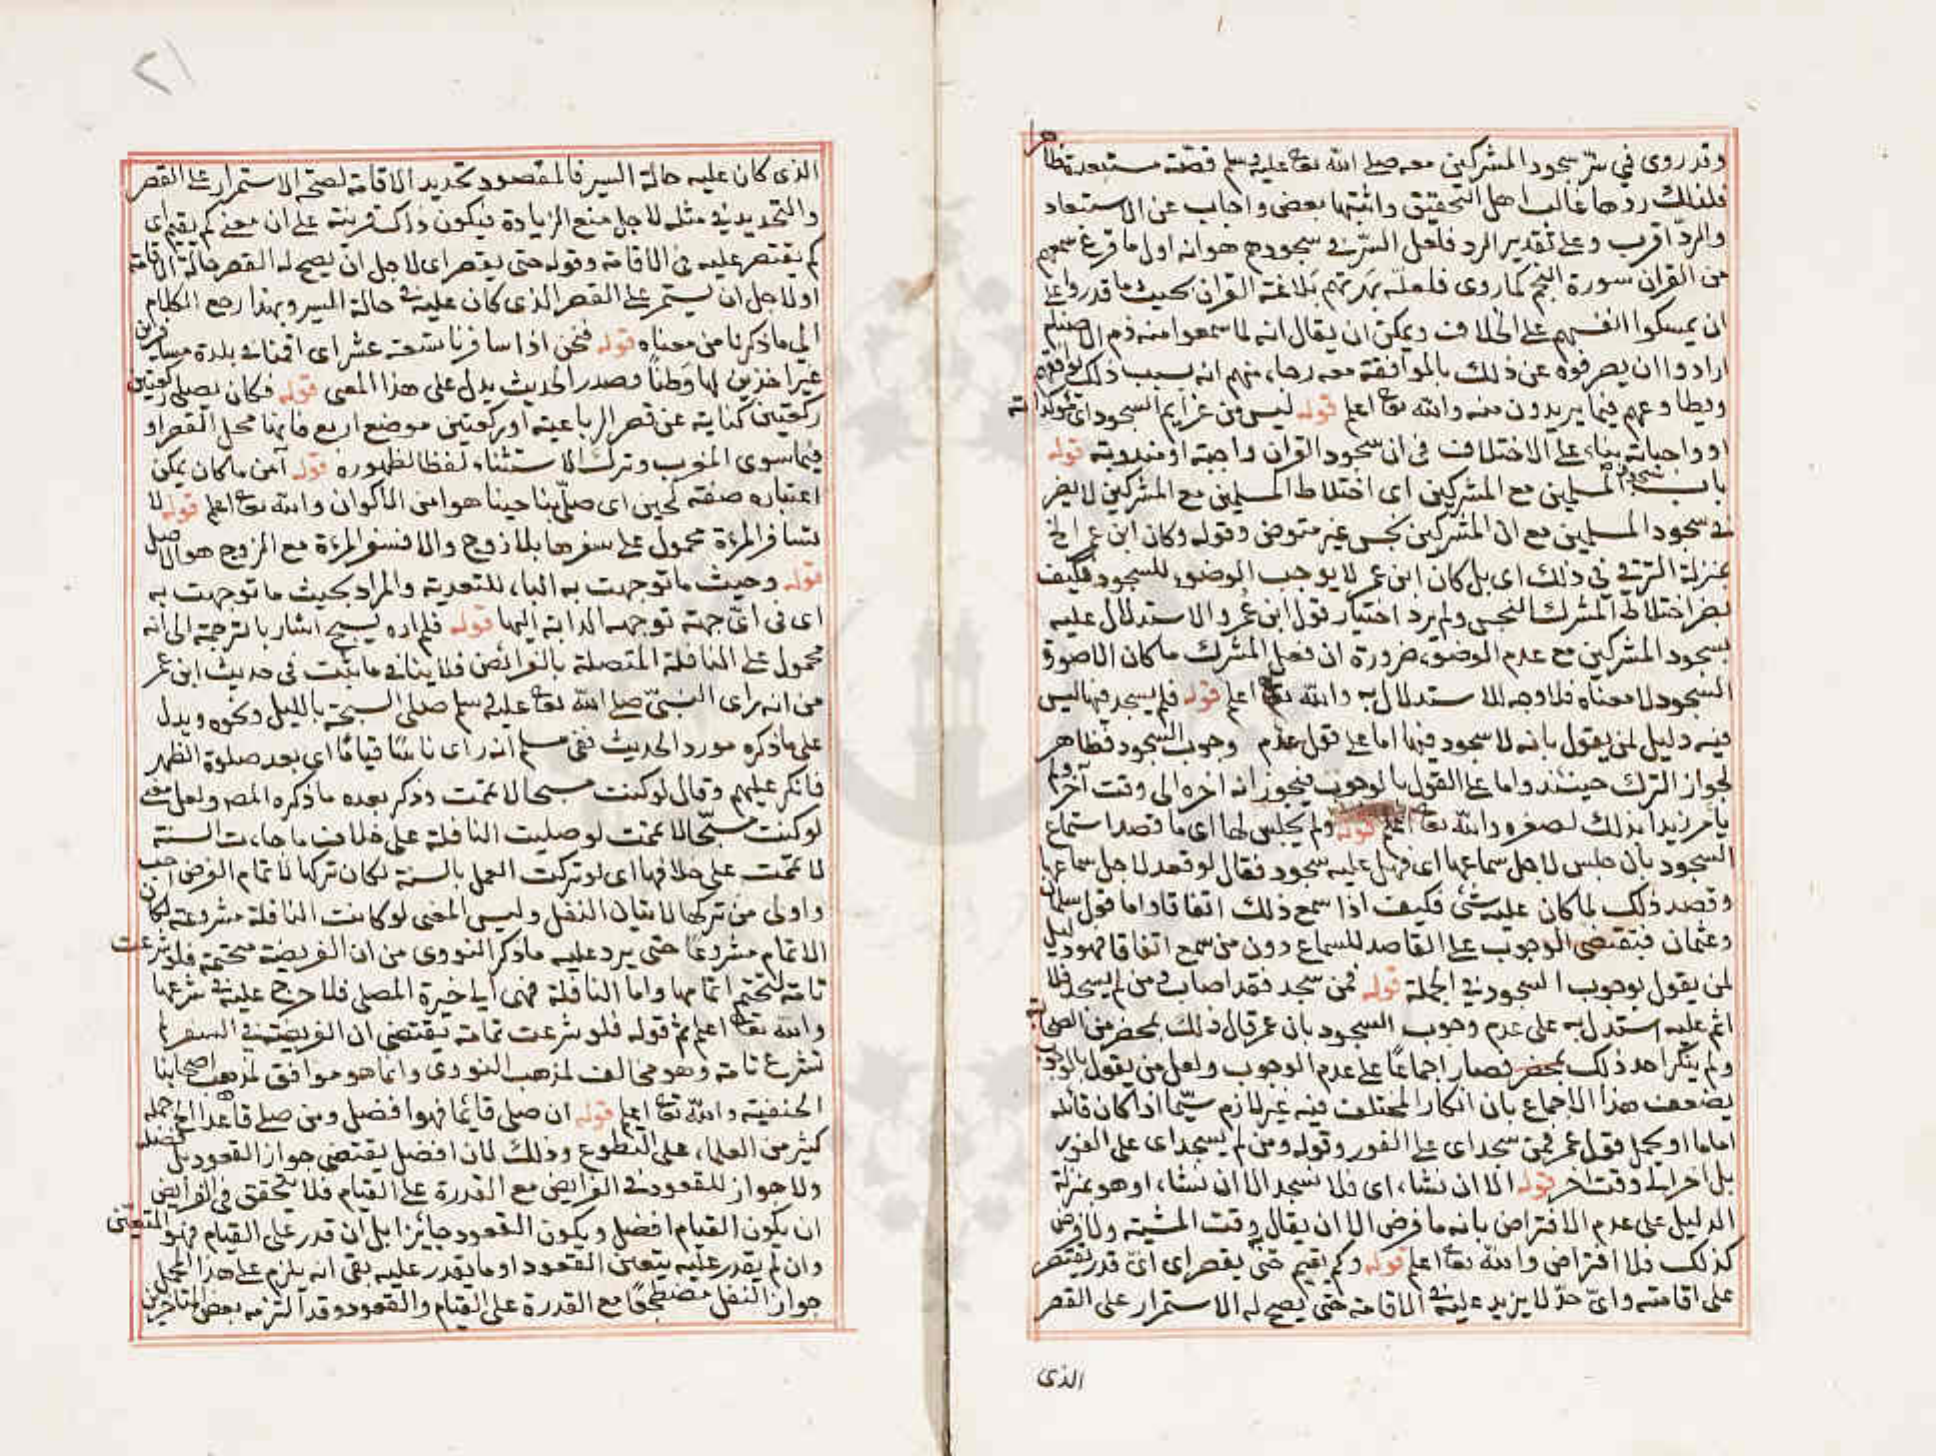 وقد روى في سرّ سجود المشركين معه صلى الله تعا عليه وسلم قصّة مستبعدة ظاهرا
فلذلك ردها غالب اهل التحقيق واثبتها بعض واجاب عن الاستبعاد
والردّ اقرب وعلى تقدير الرد فلعل السّر في سجودهم هو انه اول ما قرع سمعهم
من القران سورة النجم كما روى فلعلّه بهرتهم بلاغة القران بحيث ما قدروا على
ان يمسكوا انفسهم على الخلاف ويمكن ان يقال انه لما سمعوا منه ذم الاصنام
ارادوا ان يصرفوه عن ذلك بالموافقة معه رجاء منهم انه بسبب ذلك يوافقهم
ويطاوعهم فيما يريدون منه والله تعا اعلم قوله ليس من عزايم السجود اى مؤكداته
او واجباته بناء على الاختلاف في ان سجود القران واجبة او مندوبة قوله
باب سجود المسلمين مع المشركين اى اختلاط المسلمين مع المشركين لا يضر
في سجود المسلمين مع ان المشركين نجس غير متوضئ وقوله وكان ابن عمر الخ
بمنزلة الترقي في ذلك اى بل كان ابن عمر لا يوجب الوضوء للسجود فكيف
يضر اختلاط المشرك النجس ولم يرد اختيار قول ابن عمر والاستدلال عليه
بسجود المشركين مع عدم الوضوء ضرورة ان فعل المشرك ما كان الا صورة
السجود لا معناه فلا وجه للاستدلال به والله تعا اعلم قوله فلم يسجد فيها ليس
فيه دليل لمن يقول بانه لا سجود فيها اما على قول عدم وجوب السجود فظاهر
لجواز الترك حينئذ واما على القول بالوجوب فيجوز انه اخره الى وقت آخر ولم
يأمر زيدا بذلك لصغره والله تعا اعلم قوله ولم يجلس لها اى ما قصد استماع
السجود بان جلس لاجل سماعها اى فهل عليه سجود فقال لو قعد لاجل سماعها
وقصد ذلك لما كان عليه شئ فكيف اذا سمع ذلك اتفاقا واما قول سلمان
وعثمان فيقتضى الوجوب على القاصد للسماع دون من سمع اتفاقا فهو دليل
لمن يقول بوجوب السجود في الجملة قوله فمن سجد فقد اصاب ومن لم يسجد فلا
اثم عليه استدل به على عدم وجوب السجود بان عمر قال ذلك بمحضر من الصحابة
ولم ينكر احد ذلك بمحضر فصار اجماعًا على عدم الوجوب ولعل من يقول بالوجوب
يضعف هذا الاجماع بان انكار المختلف فيه غير لازم سيّما اذا كان قائله
اماما او يحمل قول عمر فمن سجد اى على الفور وقوله ومن لم يسجد اى على الفور
بل اخر الى وقت اخر قوله الا ان نشاء اى فلا نسجد الا ان نشاء او هو بمنزلة
الدليل على عدم الافتراض بانه ما فرض الا ان يقال وقت المشية ولا فرض
كذلك فلا افتراض والله تعا اعلم قوله وكم يقيم حتى يقصر اى اىّ قدر يقتصر
على اقامته واىّ حدّ لا يزيد عليه في الاقامة حتى يصح له الاستمرار على القصر
الذى
الذى كان عليه حالة السير فالمقصود تحديد الاقامة لصحة الاستمرار على القصر
والتحديد في مثله لاجل منع الزيادة فيكون ذاك قرينة على ان معنى كم يقيم اى
كم يقتصر عليه في الاقامة وقوله حتى يقصر اى لاجل ان يصح له القصر حالة الاقامة
او لاجل ان يستمر على القصر الذى كان عليه في حالة السير وبهذا رجع الكلام
الى ما ذكرنا من معناه قوله فنحن اذا سافرنا تسعة عشر اى اقمنا في بلدة مسافرين
غير اخذين لها وَطنًا وصدر الحديث يدل على هذا المعنى قوله فكان يصلى ركعتين
ركعتين كناية عن قصر الرباعية او ركعتين موضع اربع فانها محل القصر او
فيما سوى المغرب وترك الاستثناء لفظا لظهوره قوله آمن ما كان يمكن
اعتباره صفة لحين اى صلّى بنا حينا هو امن الاكوان والله تعا اعلم قوله لا
تسافر المراة محمول على سفرها بلا زوج والا فسفر المراة مع الزوج هو الاصل
قوله وحيث ما توجهت به الباء للتعدية والمراد بحيث ما توجهت به
اى في اىّ جهة توجهه الدابة اليها قوله فلم اره يسبح اشار بالترجمة الى انه
محمول على النافلة المتصلة بالفرائض فلا ينافي ما يثبت في حديث ابن عمر
من انه راى النبيّ صلى الله تعا عليه وسلم صلى السبحة بالليل ونحوه ويدل
على ما ذكره مورد الحديث ففي مسلم انه راى ناسًا قيامًا اى بعد صلوة الظهر
فانكر عليهم وقال لو كنت مسبحا لاتممت وذكر بعده ما ذكره المص ولعل معنى
لو كنت مسبّحا لاتممت لو صليت النافلة على خلاف ما جاءت السنة
لاتممت على خلافها اى لو تركت العمل بالسنة لكان تركها لاتمام الفرض احب
واولى من تركها لاتيان النفل وليس المعنى لو كانت النافلة مشروعة لكان
الاتمام مشروعًا حتى يرد عليه ما ذكر النووى من ان الفريضة متحتمة فلو شرعت
تامة لتحتم اتمامها واما النافلة فهى الى خيرة المصلى فلا حرج عليه في شرعها
والله تعا اعلم ثم قوله فلو شرعت تامة يقتضى ان الفريضة في السفر لم
تشرع تامة وهو مخالف لمذهب النووى وانما هو موافق لمذهب اصحابنا
الحنفية والله تعا اعلم قوله ان صلى قائما فهو افضل ومن صلى قاعدا الخ حمله
كثير من العلماء على التطوع وذلك لان افضل يقتضى جواز القعود بل فضله
ولا جواز للقعود في الفرايض مع القدرة على القيام فلا يتحقق في الفرايض
ان يكون القيام افضل ويكون القعود جائزا بل ان قدر على القيام فهو المتعيّن
وان لم يقدر عليه يتعين القعود او ما يقدر عليه بقى انه يلزم على هذا المحمل
جواز النفل مضطجعًا مع القدرة على القيام والقعود وقد التزمه بعض المتاخرين